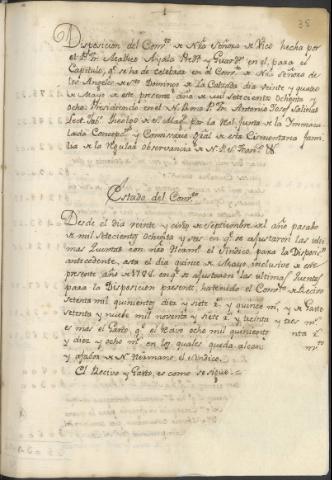 38
Disposicion del Conv.to de Nra Señora de Vico hecha por
el P. Fr. Matheo Ayala Pred.r y Guar.n en el, para el
Capitulo, q.e se ha de celebrar en el Conv.to de Nra Señora de
los Angeles de S.to Domingo de la Calzada dia veinte y quatro
de Mayo de este presente año de mil setecientos ochenta y
ocho: Presidiendo en el N. M. R. P. Fr. Antonio Josef Salinas
Lect. Jub. Theologo de S. Mag. por la Real Junta de la Immacu
lada Concep.n y Comisario Gral de esta Cismontana fami
lia de la Regular observancia de N. P. S. Fran.co &
Estado del Conv.to
Desde el dia veinte y cinco de Septiembre del año pasado
de mil setecientos ochenta y seis en q.e se ajustaron las ulti
mas Quentas con nro Herm.o el Sindico, para la Disposic.n
antecedente, asta el dia quince de Mayo inclusive de este
presente año de 1788. en q.e se ajustaron las ultimas Quentas
para la Disposicion presente, ha tenido el Conv.to de Recivo
setenta mil quinientos diez y siete r.s y quince m.s y de Gasto
setenta y nueve mil noventa y siete r.s y treinta y tres m.s
es mas el Gasto, q.e el Recivo ocho mil quinientos
y diez y ocho m.s en los quales queda alcan
y a favor de N.o Hermano el Sindico.
El Recivo y Gasto, es como se sigue.